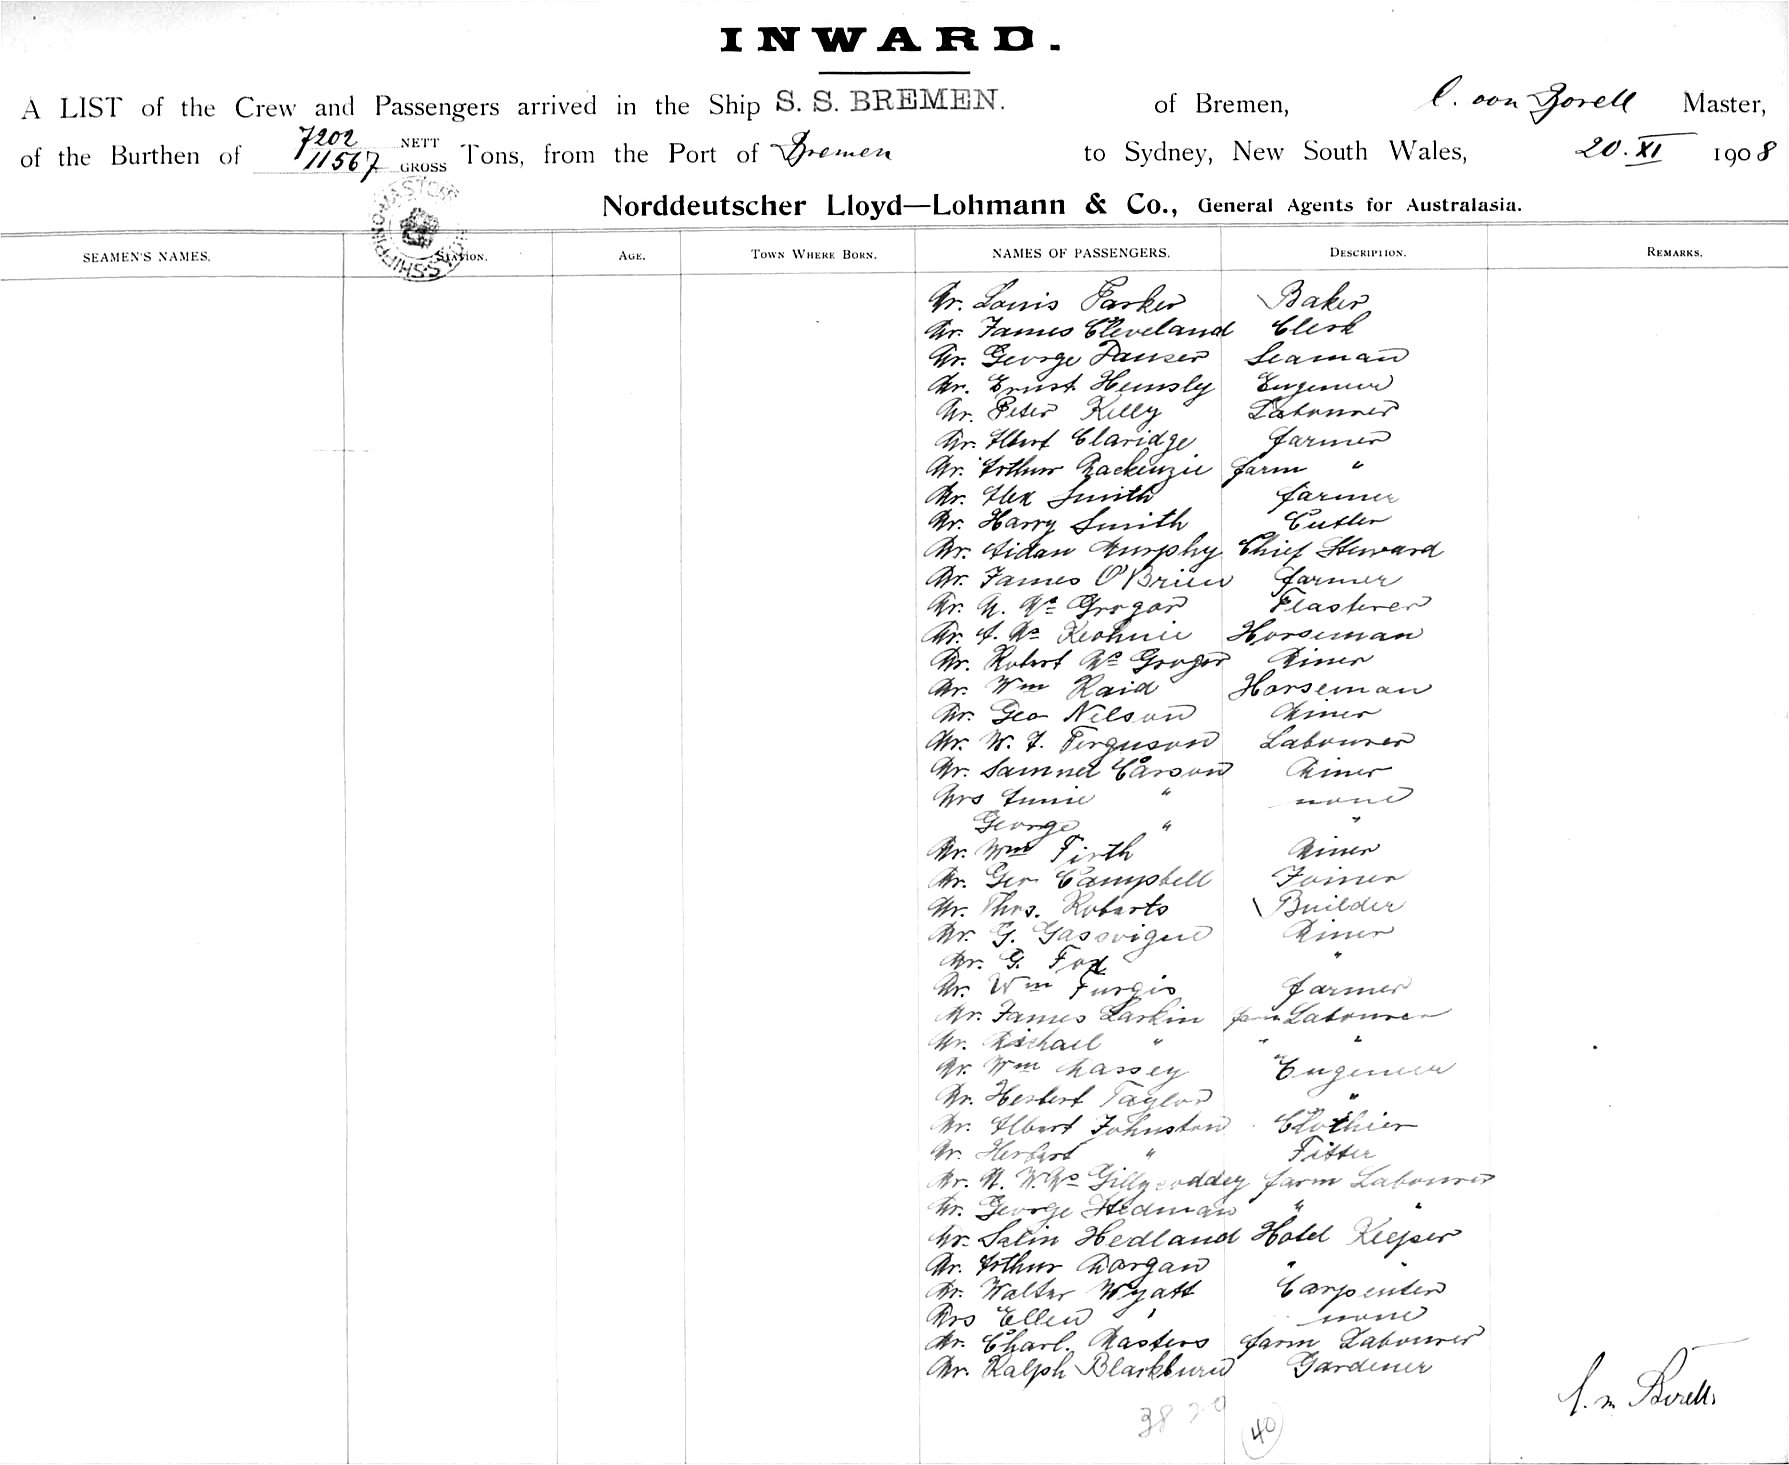 INWARD.
A LIST of the Crew and Passengers arrived in the Ship S. S. BREMEN. of Bremen, C. von Borell Master,
of the Burthen of 7202 NETT 11567 GROSS Tons, from the Port of Bremen to Sydney, New South Wales, 20. XI 1908
Norddeutscher Lloyd—Lohmann & Co., General Agents for Australasia.
SEAMEN'S NAMES. STATION. AGE. TOWN WHERE BORN. NAMES OF PASSENGERS. DESCRIPTION. REMARKS.
Mr. Louis Parker Baker
Mr. James Cleveland Clerk
Mr. George Panser Seaman
Mr. Ernst Hemsly Engeneer
Mr. Peter Kelly Labourer
Mr. Albert Claridge farmer
Mr. Arthur Mackenzie farm "
Mr. Alex Smith farmer
Mr. Harry Smith Cutler
Mr. Aidan Murphy Chief Steward
Mr. James O'Brien farmer
Mr. N. Mc Gregor Plasterer
Mr. A. Mc Keohnie Horseman
Mr. Robert Mc Gregor Miner
Mr. Wm Raid Horseman
Mr. Geo Nelson Miner
Mr. W. J. Ferguson Labourer
Mr. Samuel Carson Miner
Mrs Annie " none
George " "
Mr. Wm Firth Miner
Mr. Geo Campbell Joiner
Mr. Thos. Roberts Builder
Mr. G. Gascoigne Miner
Mr. G. Fox "
Mr. Wm Furgis farmer
Mr. James Larkin farm Labourer
Mr. Michael " " "
Mr. Wm Massey Engeneer
Mr. Herbert Taylor "
Mr. Albert Johnston Clothier
Mr. Herbert " Fitter
Mr. N. W. Mc farm Labourer
Mr. George Stedman " "
Mr. Selin Hedland Hotel Keeper
Mr. Arthur Morgan " "
Mr. Walter Wyatt Carpenter
Mrs Ellen " none
Mr. Charl. Masters farm Labourer
Mr. Ralph Blackburn Gardener
C. v. Borell.
38 20 40